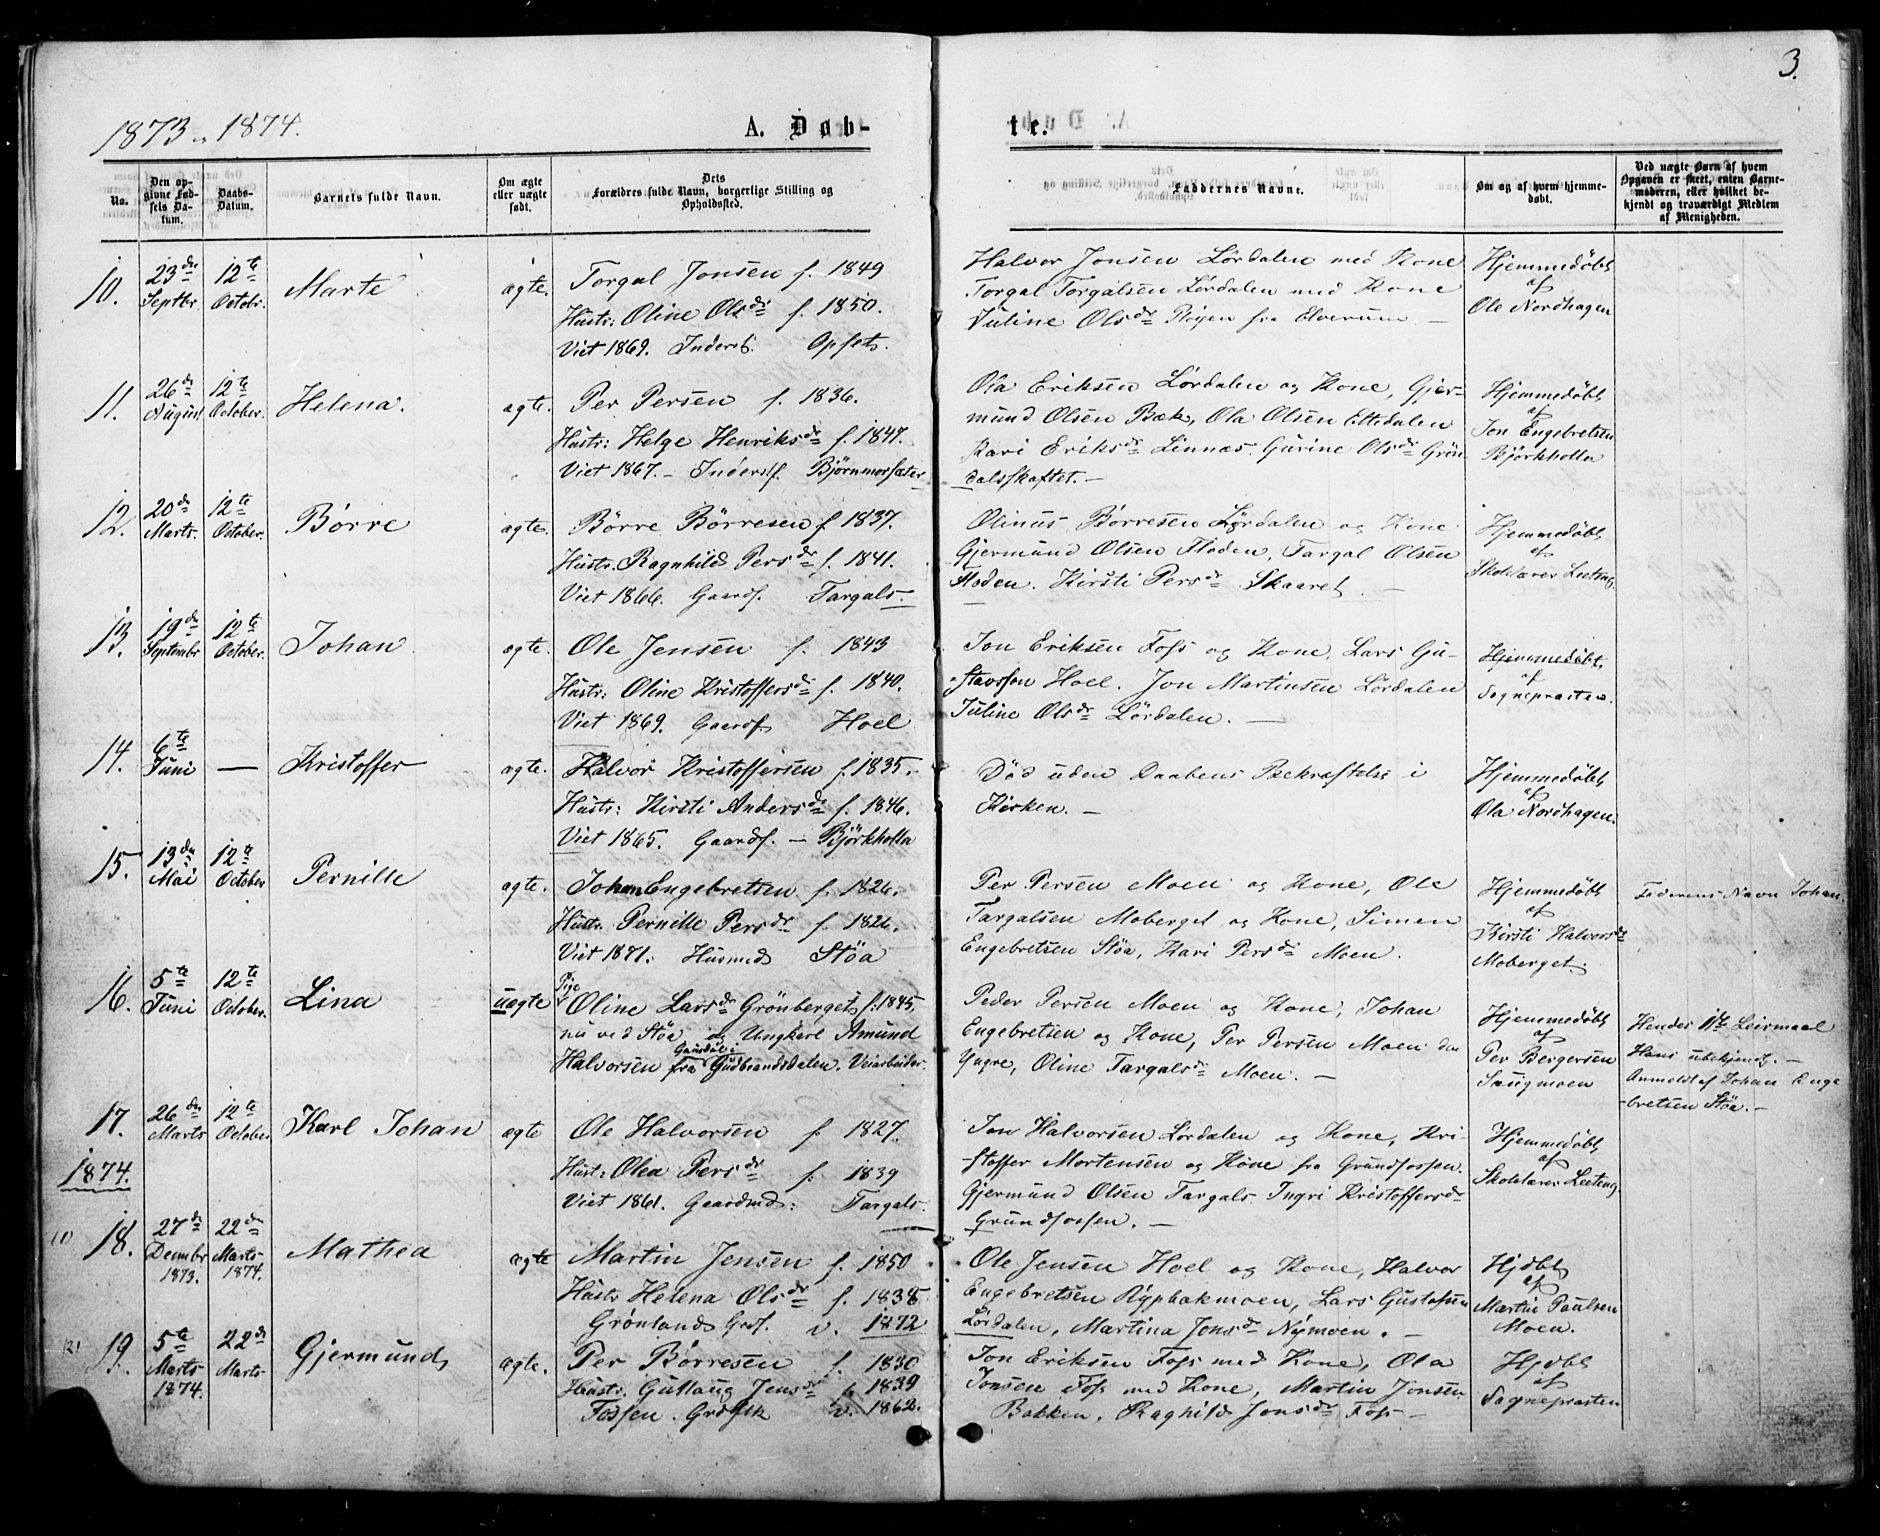 3.
1873 & 1874.
A. Døb-
te.
No.
Den opgivne Fødsels Datum.
Daabs-Datum.
Barnets fulde Navn.
Om ægte eller uægte født.
Dets Forældres fulde Navn, borgerlige Stilling og Opholdssted.
Faddernes Navne.
Om og af hvem hjemmedøbt.
Ved uægte Børn af hvem Opgaven er skeet, enten Barnemoderen, eller hvilket bekjendt og troværdigt Medlem af Menigheden.
10. 23de Septbr. 12te Octobr. Marte ægte.
Torgal Jonsen f. 1849
Hustr: Oline Olsdr f. 1850.
Viet 1869. Inderst. Opset.
Halvor Jonsen Lørdalen med Kone
Torgal Torgalsen Lørdalen med Kone
Juline Olsdr Moyen fra Elverum. —
Hjemmedøbt
af
Ole Nordhagen
11. 26de August 12te October. Helena. ægte.
Per Persen f. 1836.
Hustr: Helge Henriksdr f. 1847.
Viet 1867. — Inderstf. Bjørnmorsæter
Ola Eriksen Lørdalen og Kone, Gjer-
mund Olsen Bæk, Ola Olsen Ettedalen
Kari Eriksdr Linnæs. Gurine Olsdr Grøn
dalsskaftet. —
Hjemmedøbt
af
Jon Engebretsen
Bjørkholta
12. 20de Marts. 12te October. Børre ægte.
Børre Børresen f. 1837.
Hustr. Ragnhild Persdr f. 1841.
Viet 1866. Gaardf. Targals.
Olinus Børresen Lørdalen og Kone
Gjermund Olsen Floden, Targal Olsen
Floden. Kirsti Persdr Skaaret. —
Hjemmedøbt
af
Skolelærer Leeting.
13. 19de Septembr 12te October. Johan ægte.
Ole Jensen f. 1843
Hustr: Oline Kristoffersdr f. 1840.
Viet 1869. Gaardf. Hoel
Jon Eriksen Foss og Kone. Lars Gu-
stavssøn Hoel. Jon Martinsen Lørdalen
Juline Olsdr Lørdalen. —
Hjemmedøbt,
af
Sognepræsten.
14. 6te Juni — Kristoffer ægte.
Halvor Kristoffersen f. 1835.
Hustr: Kirsti Andersdr f. 1846.
Viet 1865. Gaardf. — Bjørkholta
Død uden Daabens Bekræftelse i
Kirken. —
Hjemmedøbt
af
Ola Nordhagen.
15. 13de Mai 12te October Pernille ægte.
Johan Engebretsen f. 1826.
Hustr. Pernille Persdr f. 1826.
Viet 1871. Husmd Støa
Per Persen Moen og Kone, Ole
Targalsen Moberget og Kone, Simen
Engebretsen Støa, Kari Persdr Moen.
Hjemmedøbt
af
Kirsti Halvorsdr
Moberget.
Faderens Navn Johan.
16. 5te Juni 12te October. Lina uægte
Pige
Oline Larsdr Grønberget f. 1845,
nu ved Støa og Ungkarl Amund
Halvorsen fra Gausdal i Gudbrandsdalen. Veiarbeider.
Peder Persen Moen og Kone, Johan
Engebretsen og Kone, Per Persen Moen den
Yngre, Oline Targalsdr Moen. —
Hjemmedøbt
af
Per Bergersen
Saugmoen
Hendes 1ste Leiermaal
Hans ubekjendt. —
Anmeldt af Johan Enge
-bretsen Støa. —
17. 26de Marts 12te October Karl Johan ægte
Ole Halvorsen f. 1827.
Hustr. Olea Persdr f. 1839
Viet 1861. Gaardmd: Targals.
Jon Halvorsen Lørdalen og Kone, Kri-
stoffer Mortensen og Kone fra Grundfossen.
Gjermund Olsen Targals Ingri Kristoffersdr
Grundfossen. —
Hjemmedøbt
af
Skolelærer Leeting.
1874.
18. 27de Decmbr 1873. 22de Marts 1874. Mathea ægte
Martin Jensen f. 1850
Hustr Helena Olsdr f. 1838
Grønlands Grdf. v. 1872
Ole Jensen Hoel og Kone, Halvor
Engebretsen Rypbakmoen, Lars Gustafsen
Lørdalen, Martina Jonsdr Nymoen. —
Hjdbt
af
Martin Paulsen
Moen.
19. 5te Marts 1874. 22de Marts Gjermund ægte.
Per Børresen f. 1830
Hustr. Gullaug Jensdr f. 1839
Fossen. v. 1862.
Jon Eriksen Foss med Kone, Ola
Jonsen Foss med Kone, Martin Jonsen
Bakken, Raghild Jonsdr Foss —
Hjdbt
af
Sognepræsten